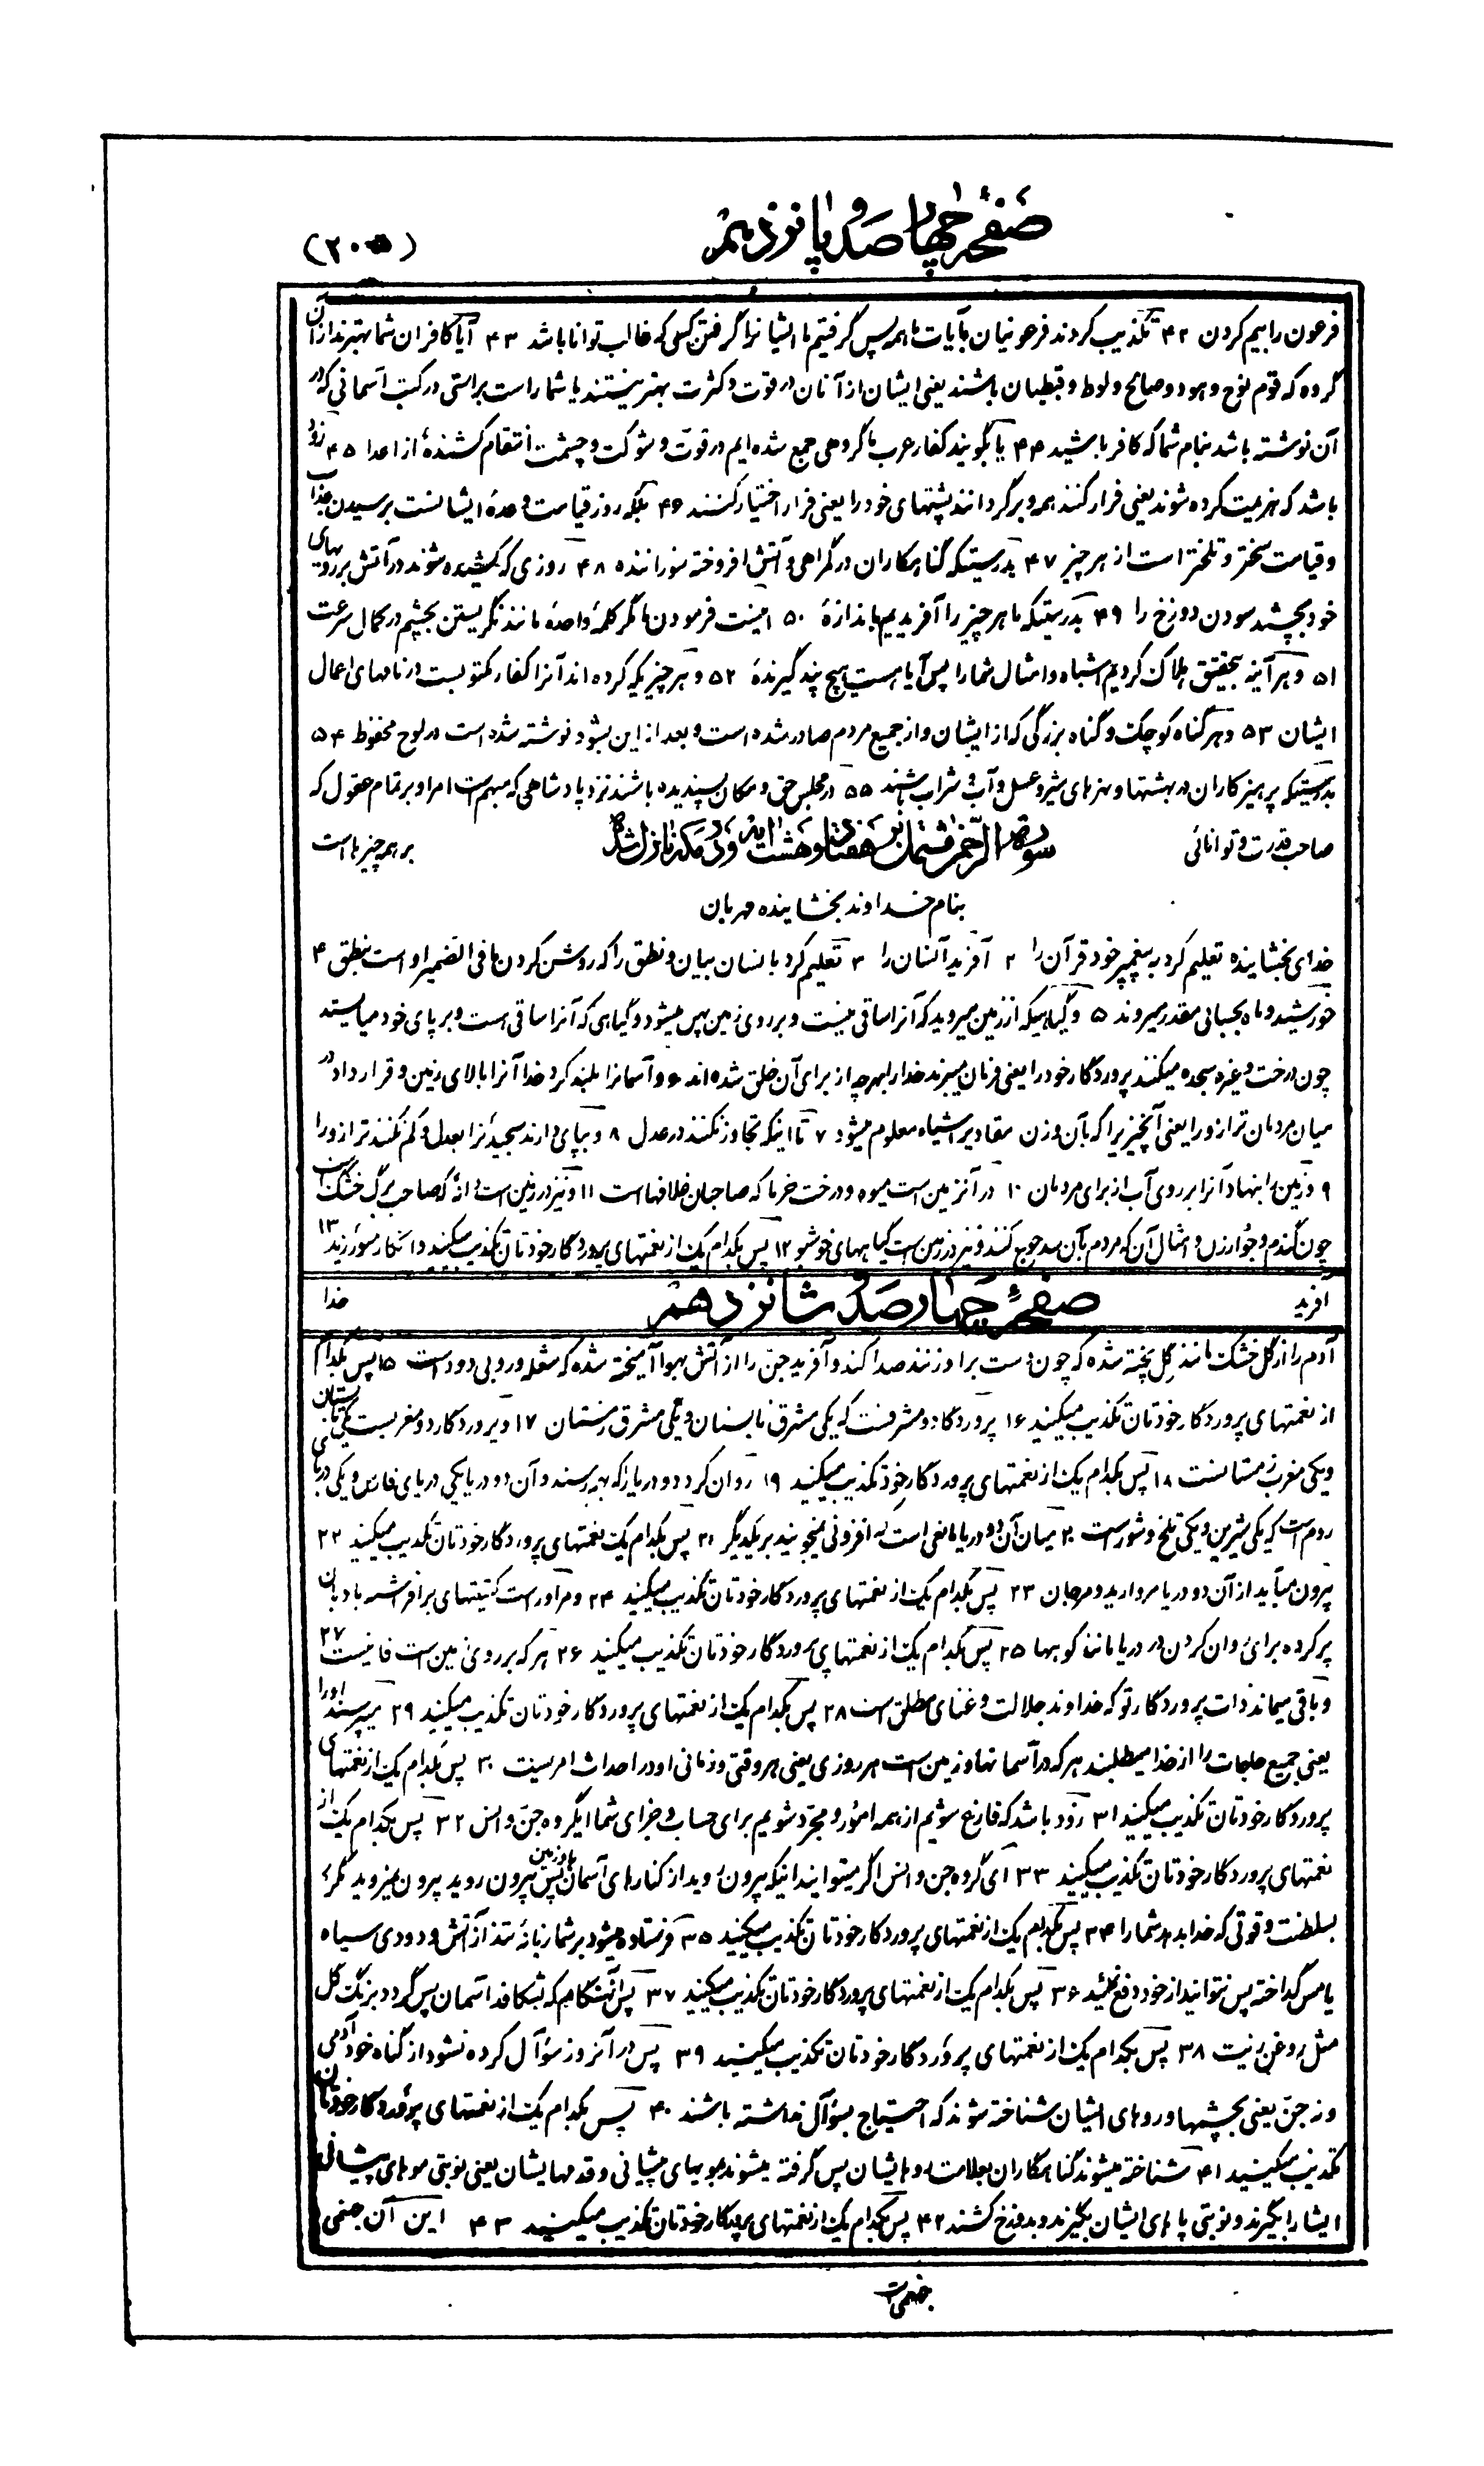 صفحهٔ چهار صد و پانزدهم
(۲۰۵)
فرعون را بیم کردن ۴۲ تکذیب کردند فرعونیان بآیات ما همه پس گرفتیم ما ایشانرا گرفتن کسی که غالب توانا باشد ۴۳ آیا کافران شما بهترند از آن
گروه که قوم نوح و هود و صالح و لوط و قبطیان باشند یعنی ایشان از آنان در قوت و کثرت بهتر نیستند یا شما راست براستی در کتب آسمانی که در
آن نوشته باشد بنام شما که کافر باشید ۴۴ یا بگویند کفار عرب ما گروهی جمع شده ایم در قوت و شوکت و حشمت انتقام کشندهٔ از اعدا ۴۵ زود
باشد که هزیمت کرده شوند یعنی فرار کنند همه و برگردانند پشتهای خود را یعنی فرار اختیار کنند ۴۶ بلکه روز قیامت وعدهٔ ایشانست برسیدن عذاب
و قیامت سختر و تلختر است از هر چیز ۴۷ بدرستیکه گناهکاران در گمراهی و آتش افروخته سوزاننده ۴۸ روزی که کشیده شوند در آتش بر رویهای
خود بچشید سودن دوزخ را ۴۹ بدرستیکه ما هر چیز را آفریدیم باندازهٔ ۵۰ امینت فرمودن ما مگر کلمهٔ واحدهٔ مانند نگریستن بچشم در کمال سرعت
۵۱ و هر آینه بتحقیق هلاک کردیم اشباه و امثال شما را پس آیا هست هیچ پند گیرندهٔ ۵۲ و هر چیزیکه کرده اند آنرا کفار مکتوبست در نامهای اعمال
ایشان ۵۳ و هر گناه کوچک و گناه بزرگی که از ایشان و از جمیع مردم صادر شده است و بعد از این بشود نوشته شده است در لوح محفوظ ۵۴
بدرستیکه پرهیزکاران در بهشتها و نهرهای شیر و عسل و آب و شراب باشند ۵۵ در مجلس حق و مکان پسندیده باشند نزد پادشاهی که مبهم است امر او بر تمام عقول که
صاحب قدرت و توانائی بر همه چیزها است
سورة الرحمن مشتمل بر هفتاد و هشت آیه و در مکه نازل شده
بنام خداوند بخشاینده مهربان
خدای بخشاینده تعلیم کرد به پیغمبر خود قرآن را ۲ آفرید انسان را ۳ تعلیم کرد بانسان بیان و نطق را که روشن کردن ما فی الضمیر او است بنطق ۴
خورشید و ماه بحسابی مقدر میروند ۵ و گیاهیکه از زمین میروید که آنرا ساقی نیست و بر روی زمین پهن میشود و گیاهی که آنرا ساقی است و بر پای خود میایستد
چون درخت و غیره سجده میکنند پروردگار خود را یعنی فرمان میبرند خدا را بهر چه از برای آن خلق شده اند ۶ و آسمانرا بلند کرد خدا آنرا بالای زمین و قرار داد در
میان مردمان ترازو را یعنی آنچیزیرا که بآن وزن مقادیر اشیاء معلوم میشود ۷ تا اینکه تجاوز نکنند در عدل ۸ و بپای دارند سنجیدنرا بعدل و کم نکنند ترازو را
۹ و زمین را بنهاد آنرا بر روی آب از برای مردمان ۱۰ در آنزمین است میوه و درخت خرما که صاحبان غلافها است ۱۱ و نیز در زمین است دانهٔ که صاحب برگ خشک است
چون گندم و جو و ارزن و امثال آن که مردم بآن رجوع کنند و نیز در زمین است گیاههای خوشبو ۱۲ پس بکدام یک از نعمتهای پروردگار خودتان تکذیب میکنید و انکار میورزید ۱۳
آفرید
صفحهٔ چهار صد و شانزدهم
خدا
آدم را از گل خشک مانند گل پخته شده که چون دست بر او زنند صدا کند و آفرید جن را از آتش بهوا آمیخته شده که شعله ور و بی دود است ۱۵ پس بکدام
از نعمتهای پروردگار خودتان تکذیب میکنید ۱۶ پروردگار دو مشرقست که یکی مشرق تابستان و یکی مشرق زمستان ۱۷ و پروردگار دو مغربست یکی تابستان
و یکی مغرب زمستانست ۱۸ پس بکدام یک از نعمتهای پروردگار خود تکذیب میکنید ۱۹ روان کرد دو دریا را که بهم رسند و آن دو دریا یکی دریای فارس و یکی دریای
روم است که یکی شیرین و یکی تلخ و شور است ۲۰ میان آن دو دریا مانعی است که افزونی نمیجویند بر یکدیگر ۲۱ پس بکدام یک نعمتهای پروردگار خودتان تکذیب میکنید ۲۲
بیرون میآید از آن دو دریا مروارید و مرجان ۲۳ پس بکدام یک از نعمتهای پروردگار خودتان تکذیب میکنید ۲۴ و مر او راست کشتیهای برافراشته بادبان
پر کرده برای روان کردن در دریا مانند کوهها ۲۵ پس بکدام یک از نعمتهای پروردگار خودتان تکذیب میکنید ۲۶ هر که بر روی زمین است فانیست ۲۷
و باقی میماند ذات پروردگار تو که خداوند جلالت و غنای مطلق است ۲۸ پس بکدام یک از نعمتهای پروردگار خودتان تکذیب میکنید ۲۹ میپرسند او را
یعنی جمیع حاجات را از خدا میطلبند هر که در آسمانها و زمین است هر روزی یعنی هر وقتی و زمانی او در احداث امریست ۳۰ پس بکدام یک از نعمتهای
پروردگار خودتان تکذیب میکنید ۳۱ زود باشد که فارغ شویم از همه امور و مجرد شویم برای حساب و جزای شما ایگروه جن و انس ۳۲ پس بکدام یک از
نعمتهای پروردگار خودتان تکذیب میکنید ۳۳ ای گروه جن و انس اگر میتوانید اینکه بیرون روید از کنارهای آسمان و زمین پس بیرون روید بیرون نمیروید مگر
بسلطنت و قوتی که خدا بدهد شما را ۳۴ پس بکدام یک از نعمتهای پروردگار خودتان تکذیب میکنید ۳۵ فرستاده میشود بر شما زبانهٔ تند از آتش و دودی سیاه
یا مس گداخته پس نتوانید از خود دفع کنید ۳۶ پس بکدام یک از نعمتهای پروردگار خودتان تکذیب میکنید ۳۷ پس آنهنگام که بشکافد آسمان پس گردد برنگ گل
مثل روغن زیت ۳۸ پس بکدام یک از نعمتهای پروردگار خودتان تکذیب میکنید ۳۹ پس در آنروز سؤال کرده نشود از گناه خود آدمی
و نه جن یعنی بچشمها و روهای ایشان شناخته شوند که احتیاج بسؤال نداشته باشند ۴۰ پس بکدام یک از نعمتهای پروردگار خودتان
تکذیب میکنید ۴۱ شناخته میشوند گناهکاران بعلامت روهایشان پس گرفته میشوند بمویهای پیشانی و قدمهایشان یعنی نوبتی موهای پیشانی
ایشانرا بگیرند و نوبتی پاهای ایشان بگیرند و بدوزخ کشند ۴۲ پس بکدام یک از نعمتهای پروردگار خودتان تکذیب میکنید ۴۳ این آن جهنمی